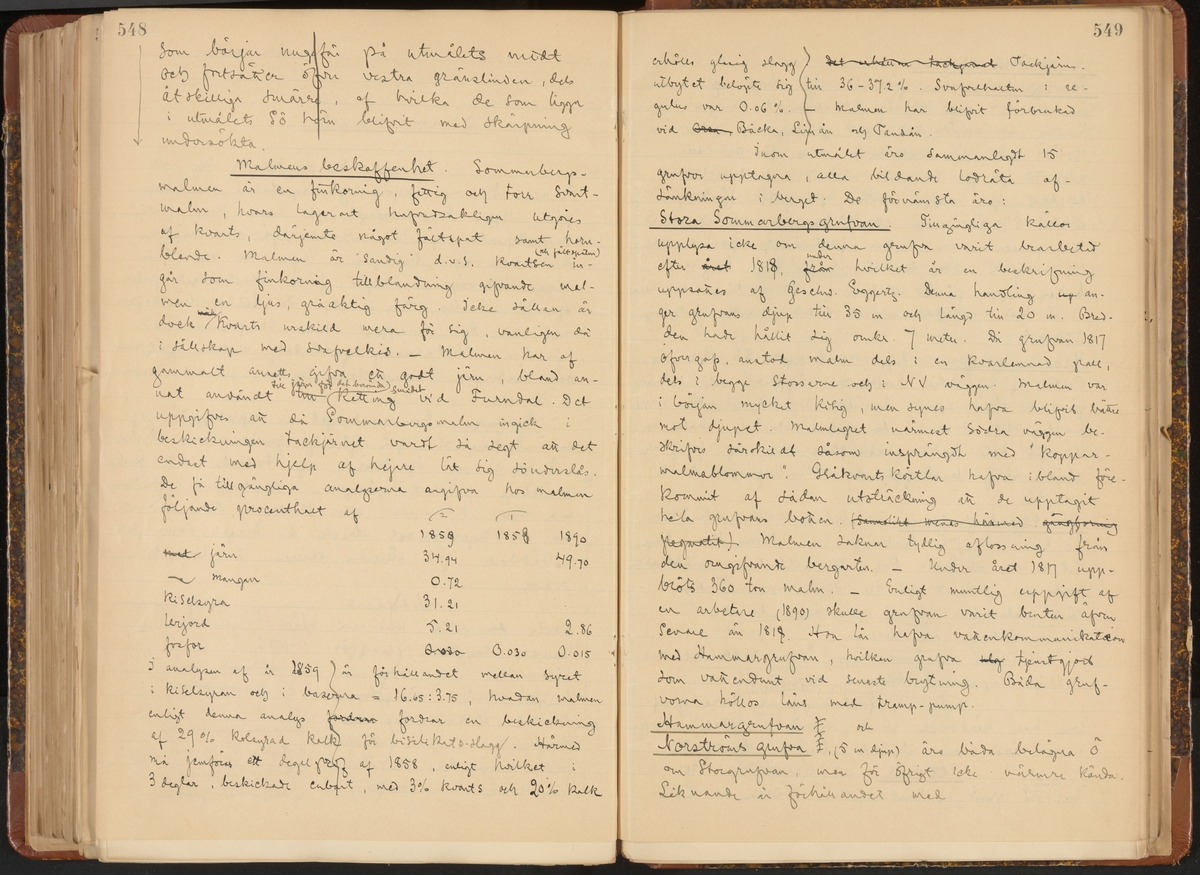 548
som börjar ungefär på utmålets midt
och fortsätter öfver vestra gränslinien, dels
åtskilliga smärre, af hvilka de som ligga
i utmålets SÖ hörn blifvit med skärpning
undersökta.
Malmens beskaffenhet. Sommarbergs-
malmen är en finkornig, fettig och torr svart-
malm, hvars lagerart hufvudsakligen utgöres
af kvarts, därjemte något fältspat samt horn-
blende. Malmen är "sandig" d.v.s. kvartsen (och fältspaten) in-
går som finkornig tillblandning gifvande mal-
men en ljus, gråaktig färg. Icke sällan är
dock kvarts urskild mera för sig, vanligen då
i sällskap med svafvelkis. — Malmen har af
gammalt ansetts gifva ett godt järn, bland an-
nat användt till järn för det berömda smidet
Kätting vid Furudal. Det
uppgifves att då Sommarbergsmalm ingick i
beskickningen tackjärnet vardt så segt att det
endast med hjelp af hejare lät sig sönderslås.
De få tillgängliga analyserna angifva hos malmen
följande procenthalt af
1859 1858 1890
järn 34.94 49.70
mangan 0.72
Kiselsyra 31.21
lerjord 5.21 2.86
fosfor 0.030 0.030 0.015
I analysen af år 1859 är förhållandet mellan syret
i kiselsyran och i baserna = 16.65:3.75, hvadan malmen
enligt denna analys fordrar en beskickning
af 29% kolsyrad kalk för bisilikats-slagg. Härmed
må jemföras ett degelprof af 1858, enligt hvilket i
3 deglar, beskickade enbart, med 3% kvarts och 20% kalk
549
erhölls glasig slagg det erhållna tackjärnet Tackjärns-
utbytet belöpte sig till 36-37.2%. Svafvelhalten i re-
gulus var 0.06%. — Malmen har blifvit förbrukad
vid Bäcka, Limån och Dandån.
Inom utmålet äro sammanlagdt 15
grufvor upptagna, alla bildande lodräta af-
sänkningar i berget. De förnämsta äro:
Stora Sommarbergsgrufvan. Tillgängliga källor
upplysa icke om denna grufva varit bearbetad
efter året 1818, från under hvilket år en beskrifning
uppsattes af Geschw. Eggertz. Denna handling an-
ger grufvans djup till 35 m och längd till 20 m. Bred-
den hade hållit sig omkr. 7 meter. Då grufvan 1817
öfvergaps, anstod malm dels i en kvarlemnad pall,
dels i begge stossarne och i NV väggen. Malmen var
i början mycket kisig, men synes hafva blifvit bättre
mot djupet. Malmlagret närmast södra väggen be-
skrifves särskildt såsom insprängdt med "koppar-
malmsblommor". Gråkvartskörtlar hafva ibland före-
kommit af sådan utsträckning att de upptagit
hela grufvans botten. (Sannolikt menas härmed gångformig
pegmatit). Malmen saknar tydlig aflossning från
den omgifvande bergarten. — Under året 1817 upp-
bröts 360 ton malm. — Enligt muntlig uppgift af
en arbetare (1890) skulle grufvan varit bruten äfven
senare än 1818. Hon lär hafva vattenkommunikation
med Hammargrufvan, hvilken grufva tjenstgjort
som vattendunt vid senaste brytning. Båda gruf-
vorna höllos läns med tramp-pump.
Hammargrufvan och
Norströms grufva, (5 m djup) äro båda belägna Ö
om Storgrufvan, men för öfrigt icke närmre kända.
Liknande är förhållandet med